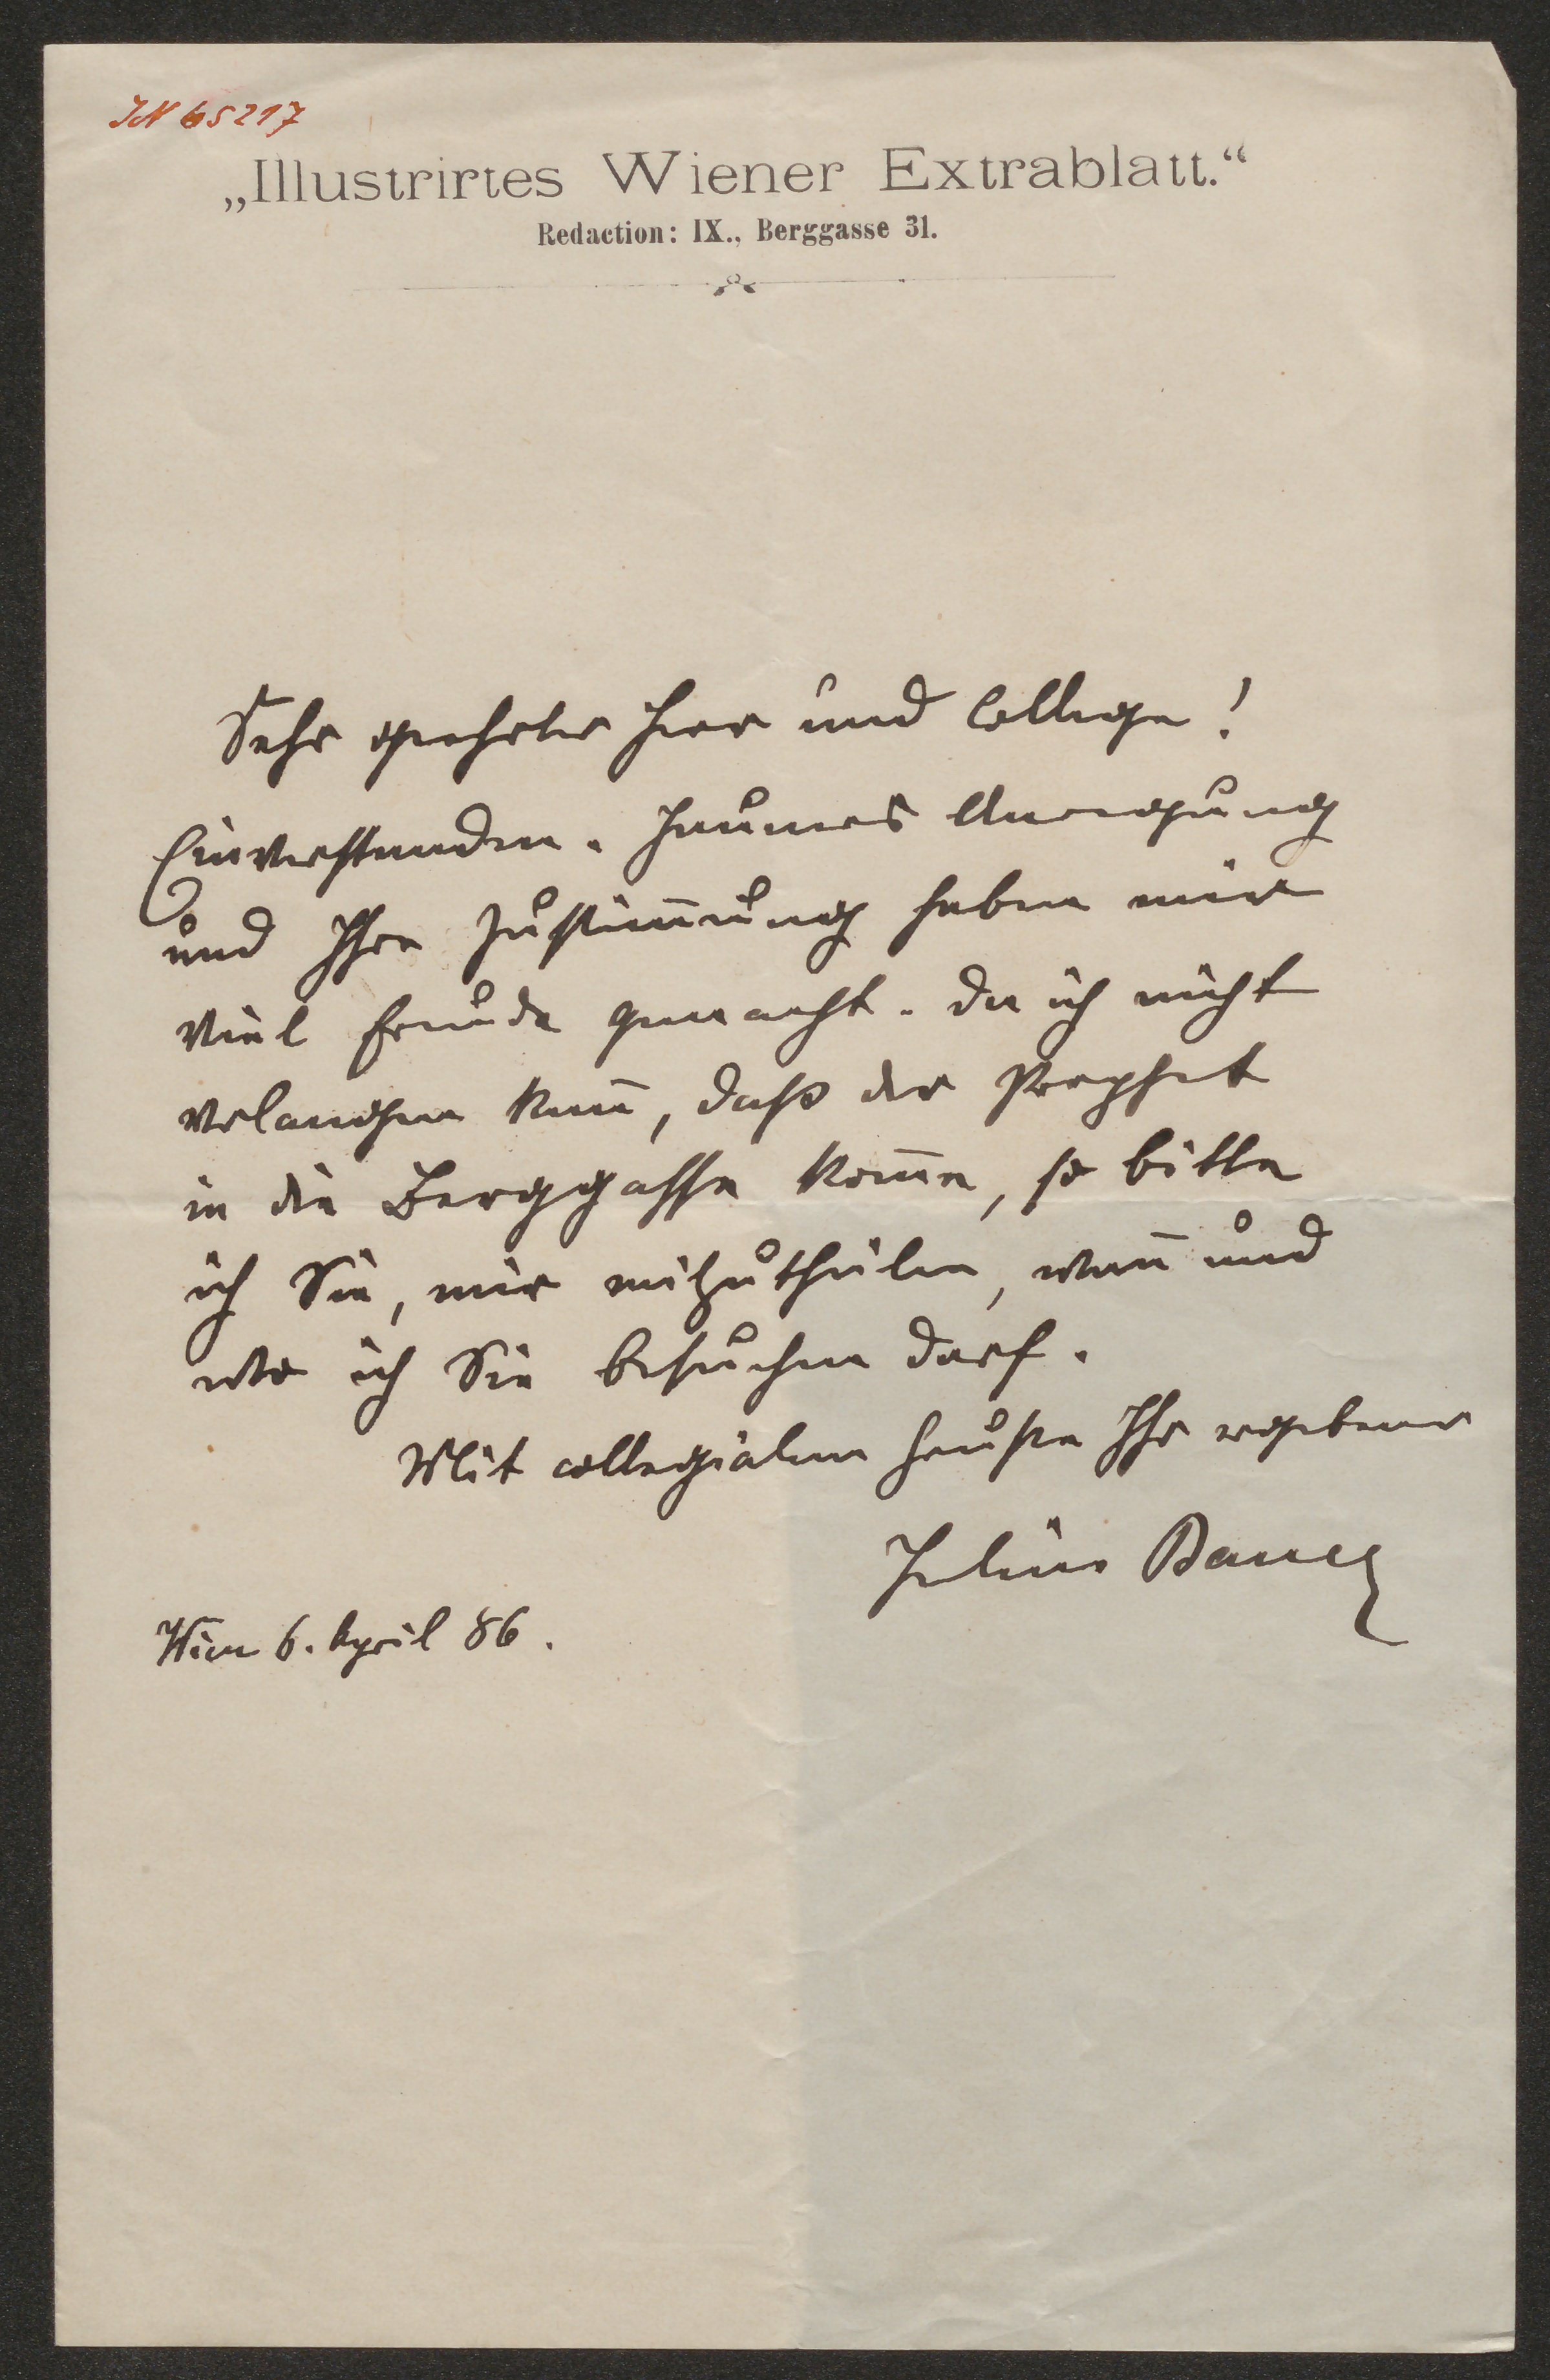 IN 65217
„Illustrirtes Wiener Extrablatt.“
Redaction: IX., Berggasse 31.
Sehr geehrter Herr und College!
Einverstanden. Jauners Anregung
und Ihre Zustim̅ung haben mir
viel Freude gemacht. Da ich nicht
verlangen kan̅, daß der Prophet
in die Berggasse kom̅e, so bitte
ich Sie, mir mitzutheilen, wan̅ und
wo ich Sie besuchen darf.
Mit collegialem Gruße Ihr ergebener
Julius Bauer
Wien 6. April 86.